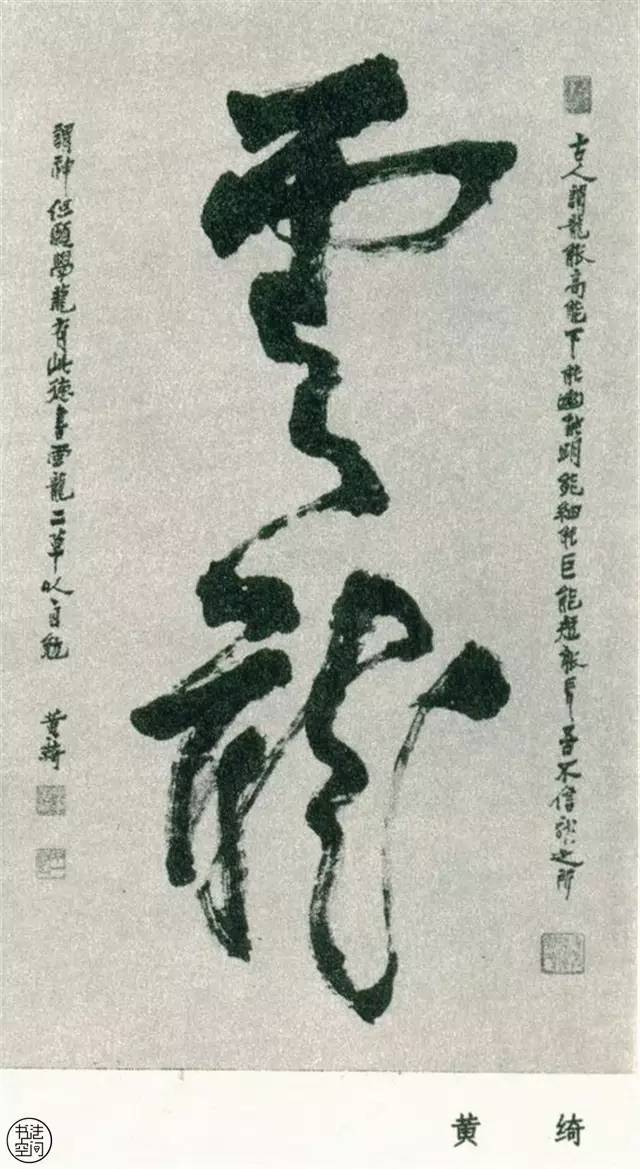 古人謂龍能高能下能幽能明能細能巨能短能長吾不信龍之所
雲龍
謂神但願學龍有此德書雲龍二草以自勉
黄綺
黄 绮
书法
空间